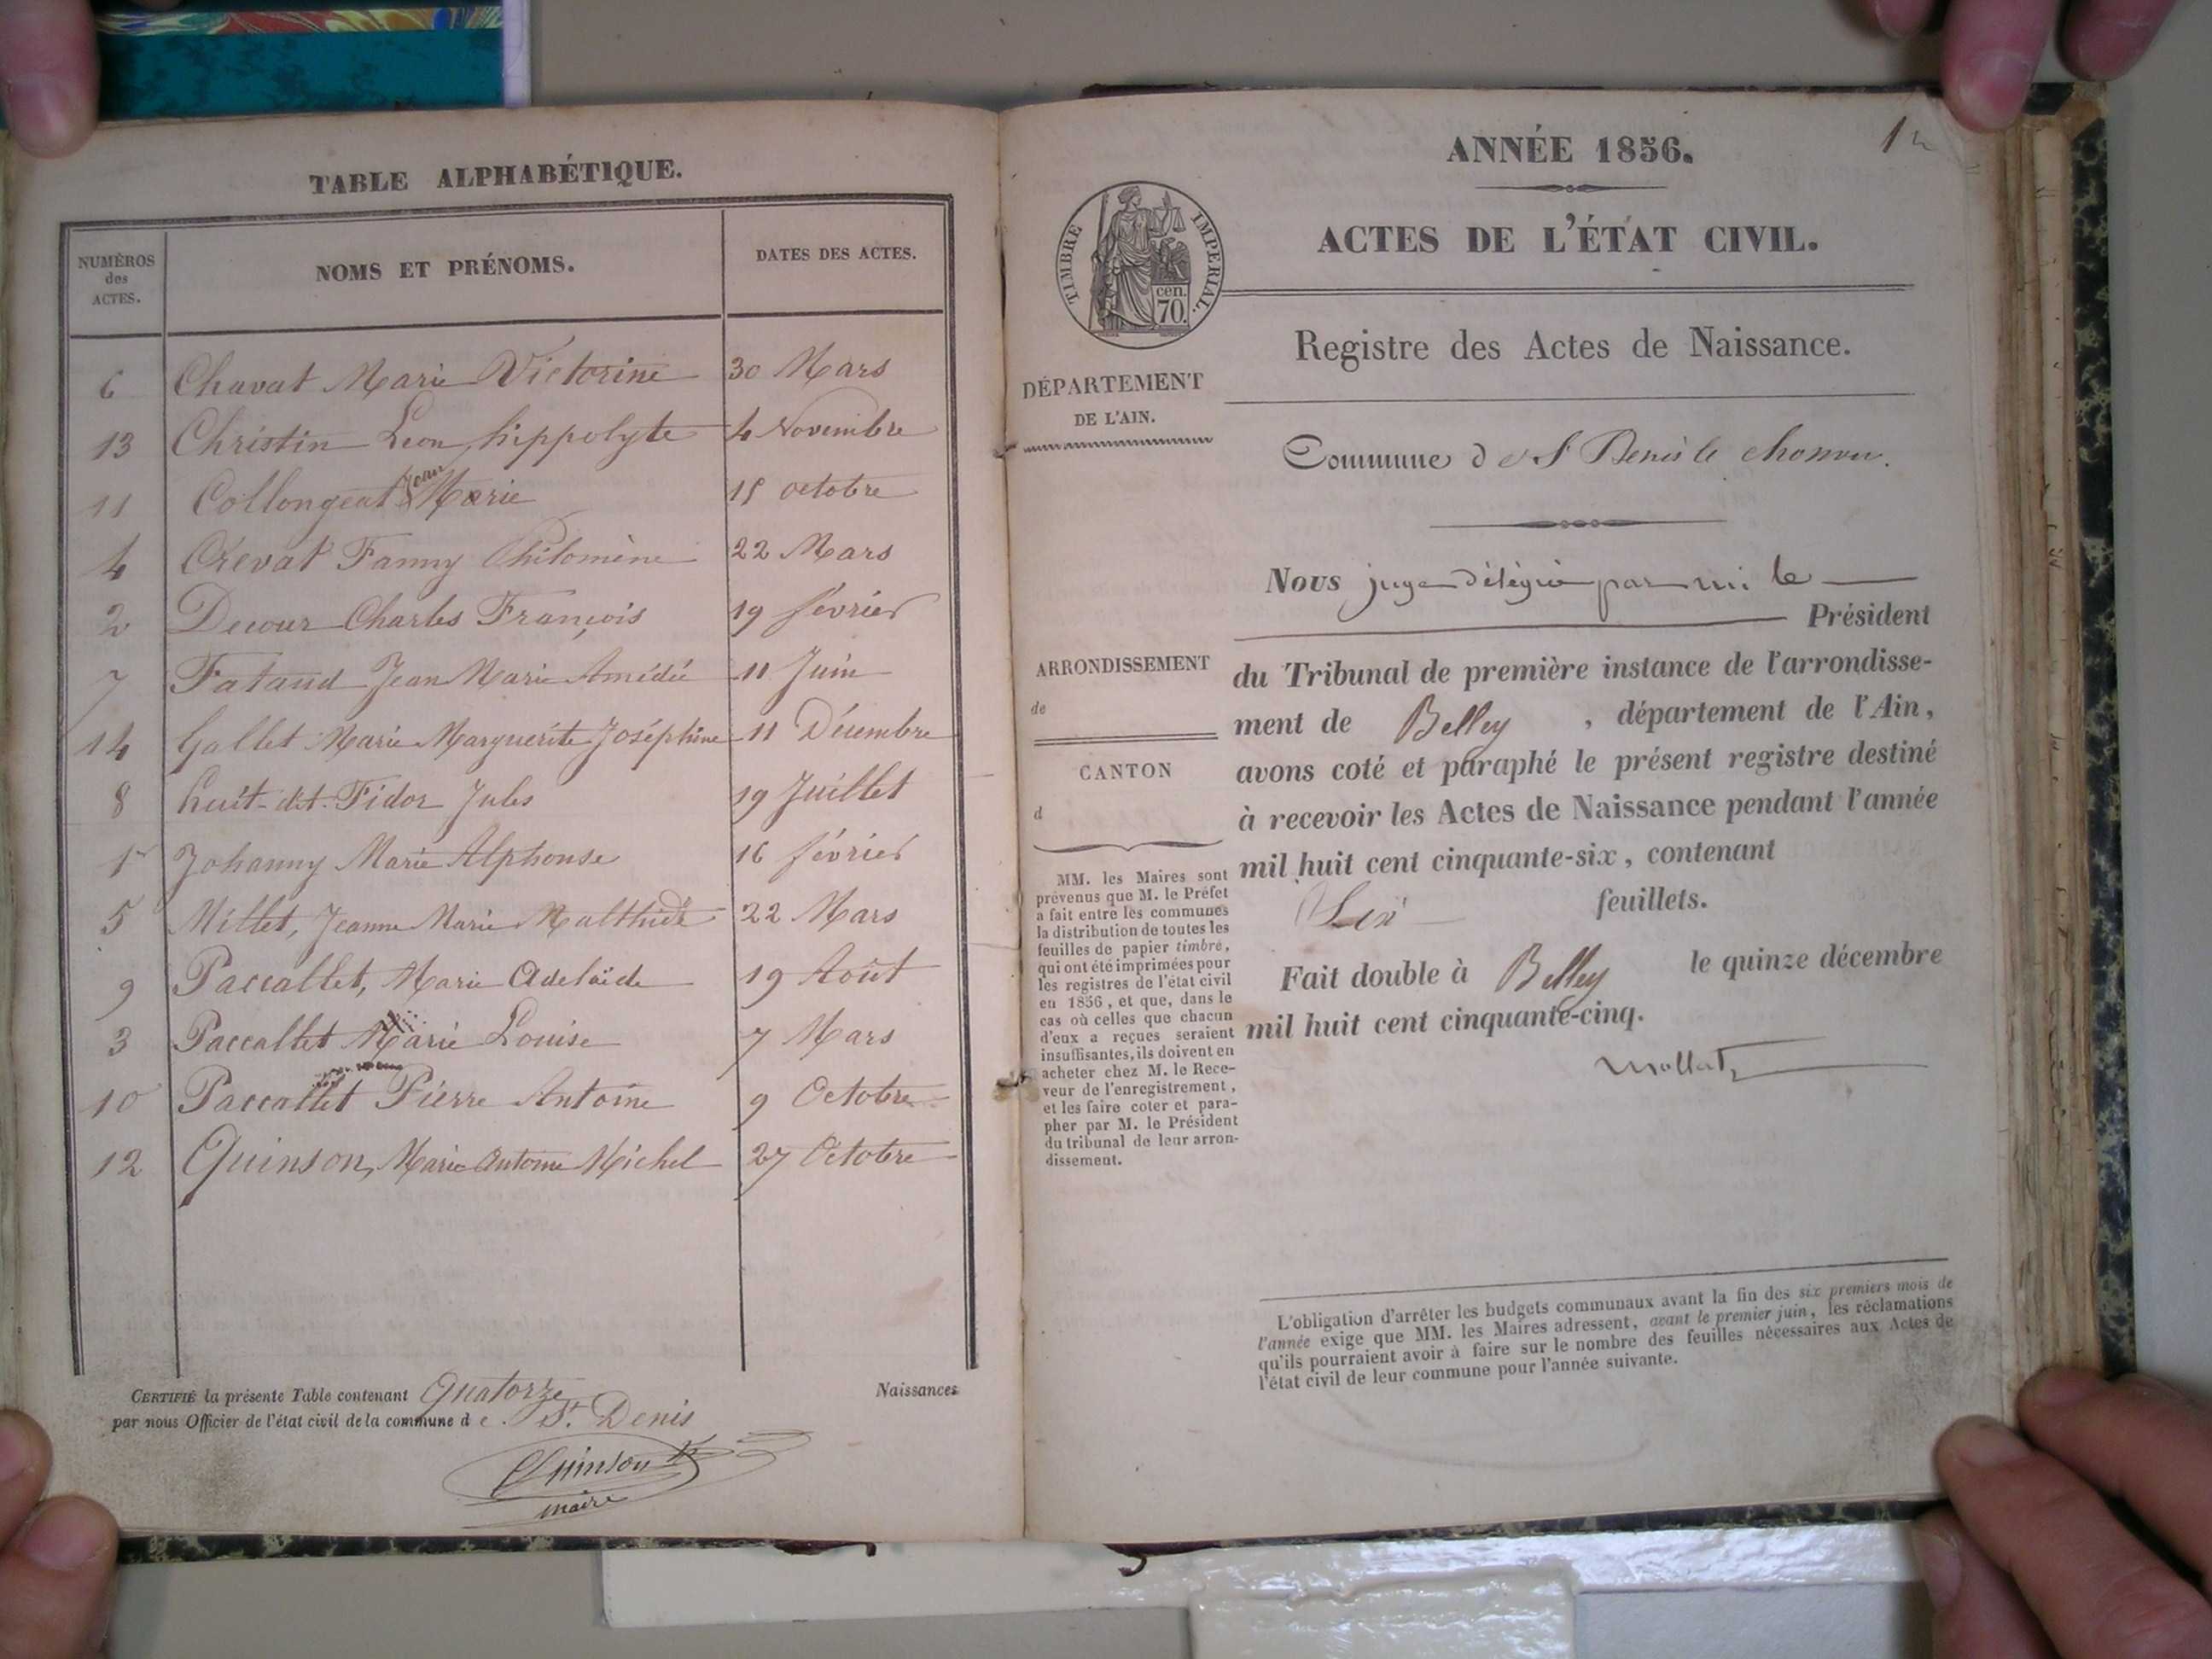 TABLE ALPHABÉTIQUE.
NUMÉROS des ACTES.
NOMS ET PRÉNOMS.
DATES DES ACTES.
6 Chavat Marie Victorine 30 Mars
13 Christin Leon hippolyte 4 Novembre
11 Collongeat Jean Marie 15 octobre
4 Crevat Fanny Philomène 22 Mars
2 Decour Charles François 19 février
7 Fataud Jean Marie Amédée 11 Juin
14 Gallet Marie Marguerite Joséphine 11 Décembre
8 huit-dit-Fidor Jules 19 Juillet
1 Johanny Marie Alphonse 16 février
5 Millet, Jeanne Marie 22 Mars
9 Paccallet, Marie Adelaïde 19 Août
3 Paccallet Marie Louise 7 Mars
10 Paccallet Pierre Antoine 9 Octobre
12 Quinson, Marie Antoine Michel 27 Octobre
CERTIFIÉ la présente Table contenant Quatorze Naissances
par nous Officier de l'état civil de la commune de St. Denis
Quinson
maire
ANNÉE 1856.
ACTES DE L'ÉTAT CIVIL.
TIMBRE IMPERIAL.
cen.
70.
Registre des Actes de Naissance.
DÉPARTEMENT
DE L'AIN.
Commune de St Denis le
Nous juge délégué par le
Président
ARRONDISSEMENT
de
du Tribunal de première instance de l'arrondisse-
ment de Belley, département de l'Ain,
CANTON
d
avons coté et paraphé le présent registre destiné
à recevoir les Actes de Naissance pendant l'année
mil huit cent cinquante-six, contenant
Six feuillets.
Fait double à Belley le quinze décembre
mil huit cent cinquante-cinq.
Mollat
MM. les Maires sont
prévenus que M. le Préfet
a fait entre les communes
la distribution de toutes les
feuilles de papier timbré,
qui ont été imprimées pour
les registres de l'état civil
en 1856, et que, dans le
cas où celles que chacun
d'eux a reçues seraient
insuffisantes, ils doivent en
acheter chez M. le Rece-
veur de l'enregistrement,
et les faire coter et para-
pher par M. le Président
du tribunal de leur arron-
dissement.
L'obligation d'arrêter les budgets communaux avant la fin des six premiers mois de
l'année exige que MM. les Maires adressent, avant le premier juin, les réclamations
qu'ils pourraient avoir à faire sur le nombre des feuilles nécessaires aux Actes de
l'état civil de leur commune pour l'année suivante.